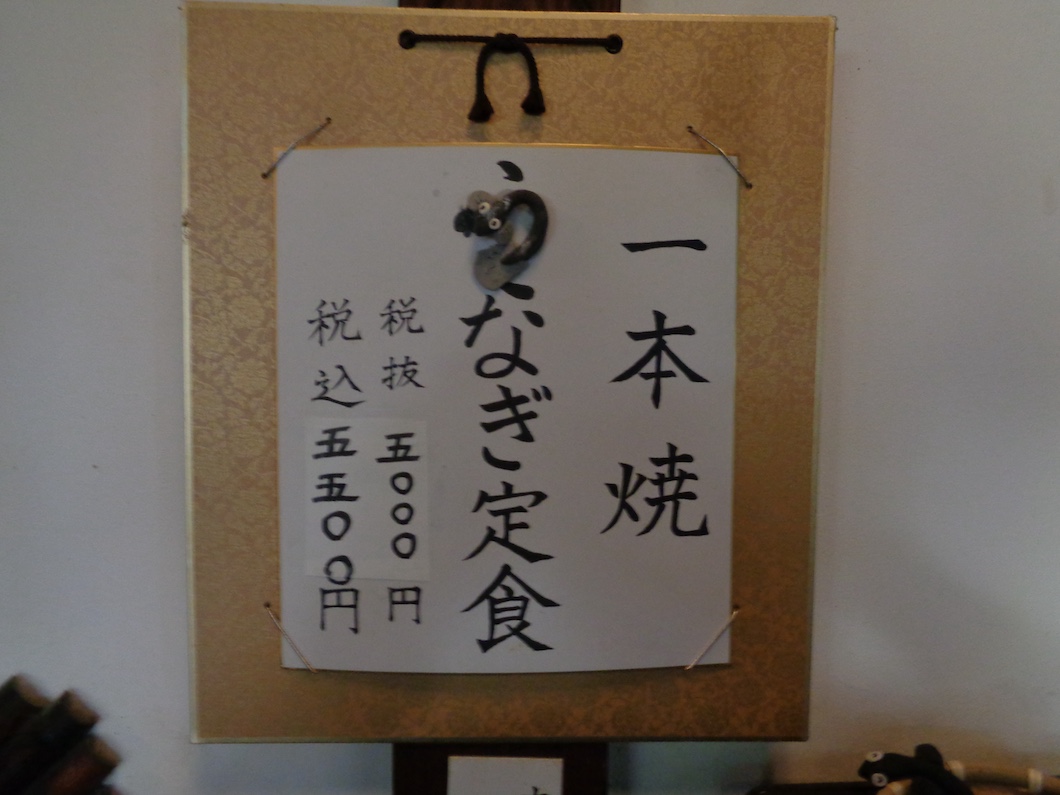 一本焼
うなぎ定食
税抜五〇〇〇円
税込五五〇〇円